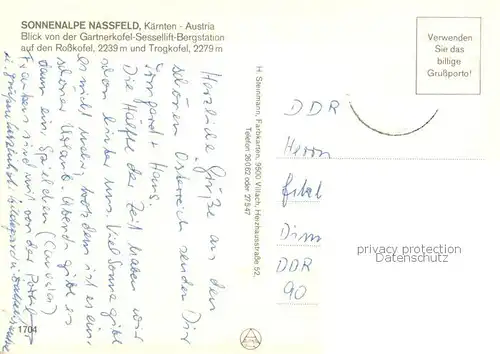 SONNENALPE NASSFELD, Kärnten - Austria
Blick von der Gartnerkofel-Sessellift-Bergstation
auf den Roßkofel, 2239 m und Trogkofel, 2279 m
Verwenden
Sie das
billige
Grußporto!
Herzliche Grüße aus dem
schönen Österreich senden Dir
Irmgard + Hans.
Die Hälfte der Zeit haben wir
schon hinter uns. Viel Sonne gibt
es nicht mehr, trotzdem ist es ein
schöner Urlaub. Abends gibt es
dann ein Spielchen (Canasta)
sind mit von der Partie
H. Steinmann, Farbkarten, 9500 Villach, Herzhausstraße 52,
Telefon 26062 oder 27547
DDR
Herrn
DDR
90
privacy protection
Datenschutz
1704